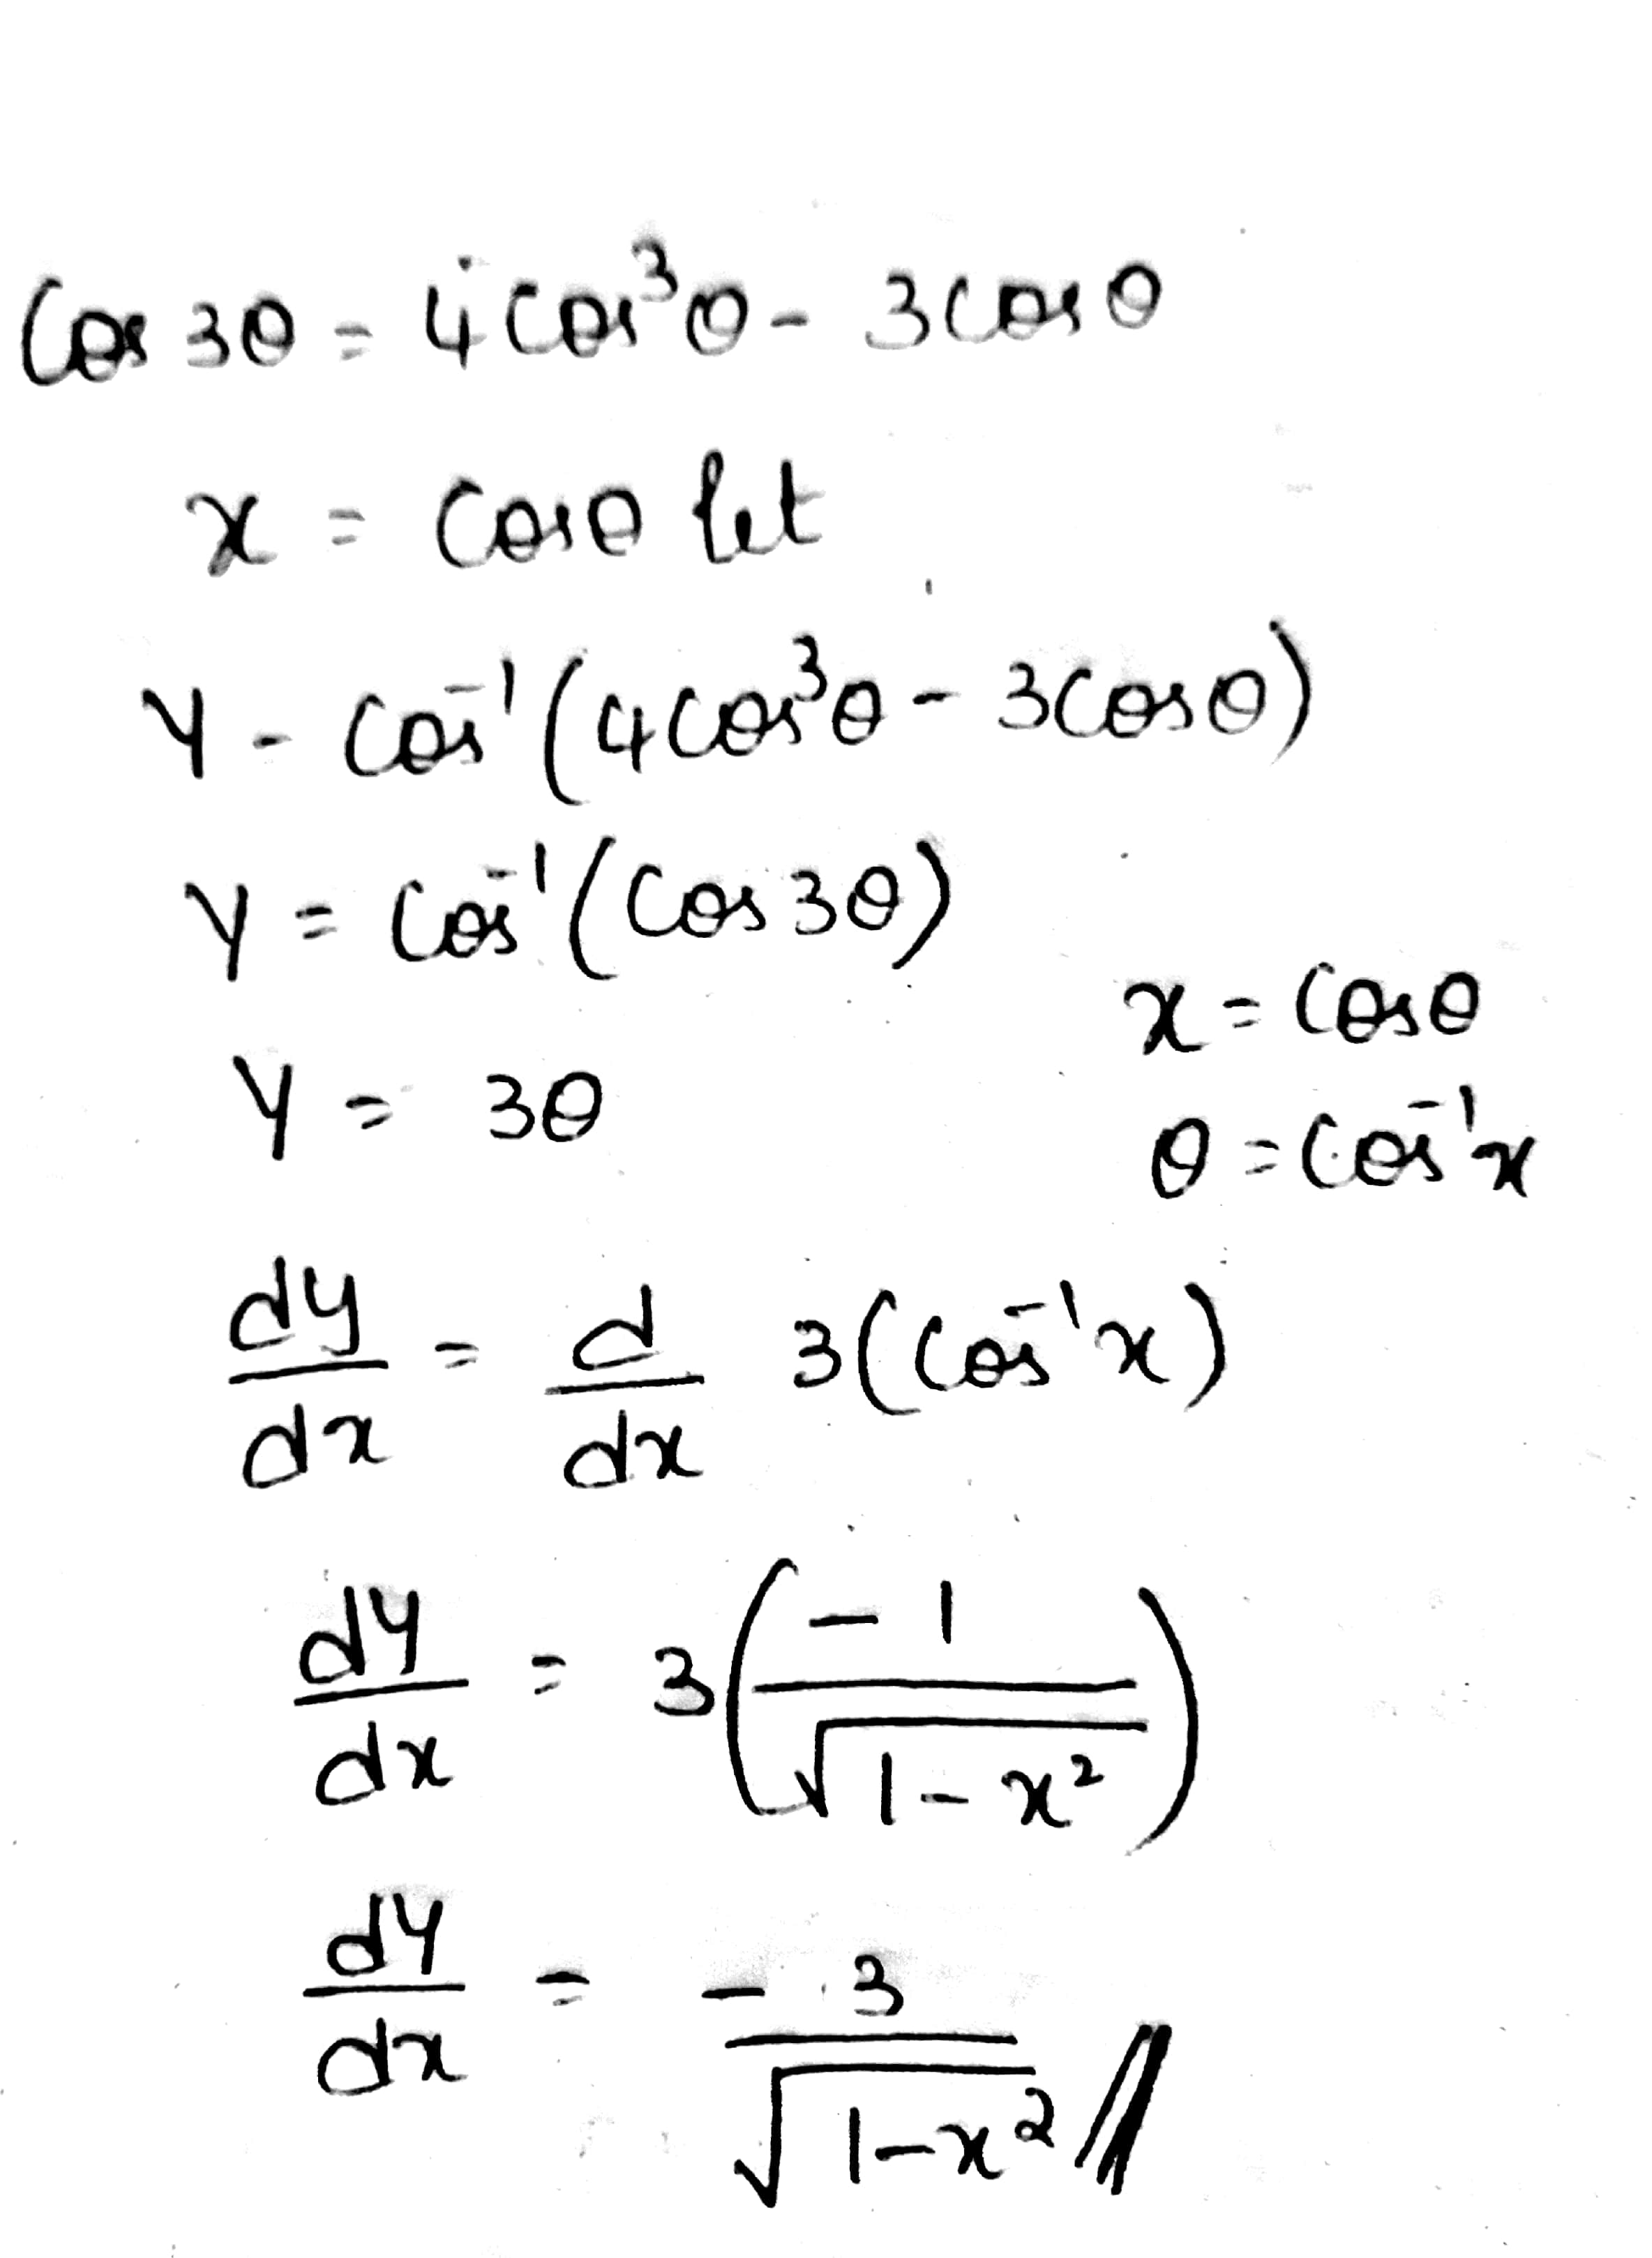 Cos 3θ = 4 cos³θ - 3 cos θ
x = cos θ let
y = cos⁻¹(4 cos³θ - 3 cos θ)
y = cos⁻¹(cos 3θ)
x = cos θ
y = 3θ
θ = cos⁻¹x
dy/dx = d/dx 3(cos⁻¹x)
dy/dx = 3(-1/√(1-x²))
dy/dx = -3/√(1-x²) //